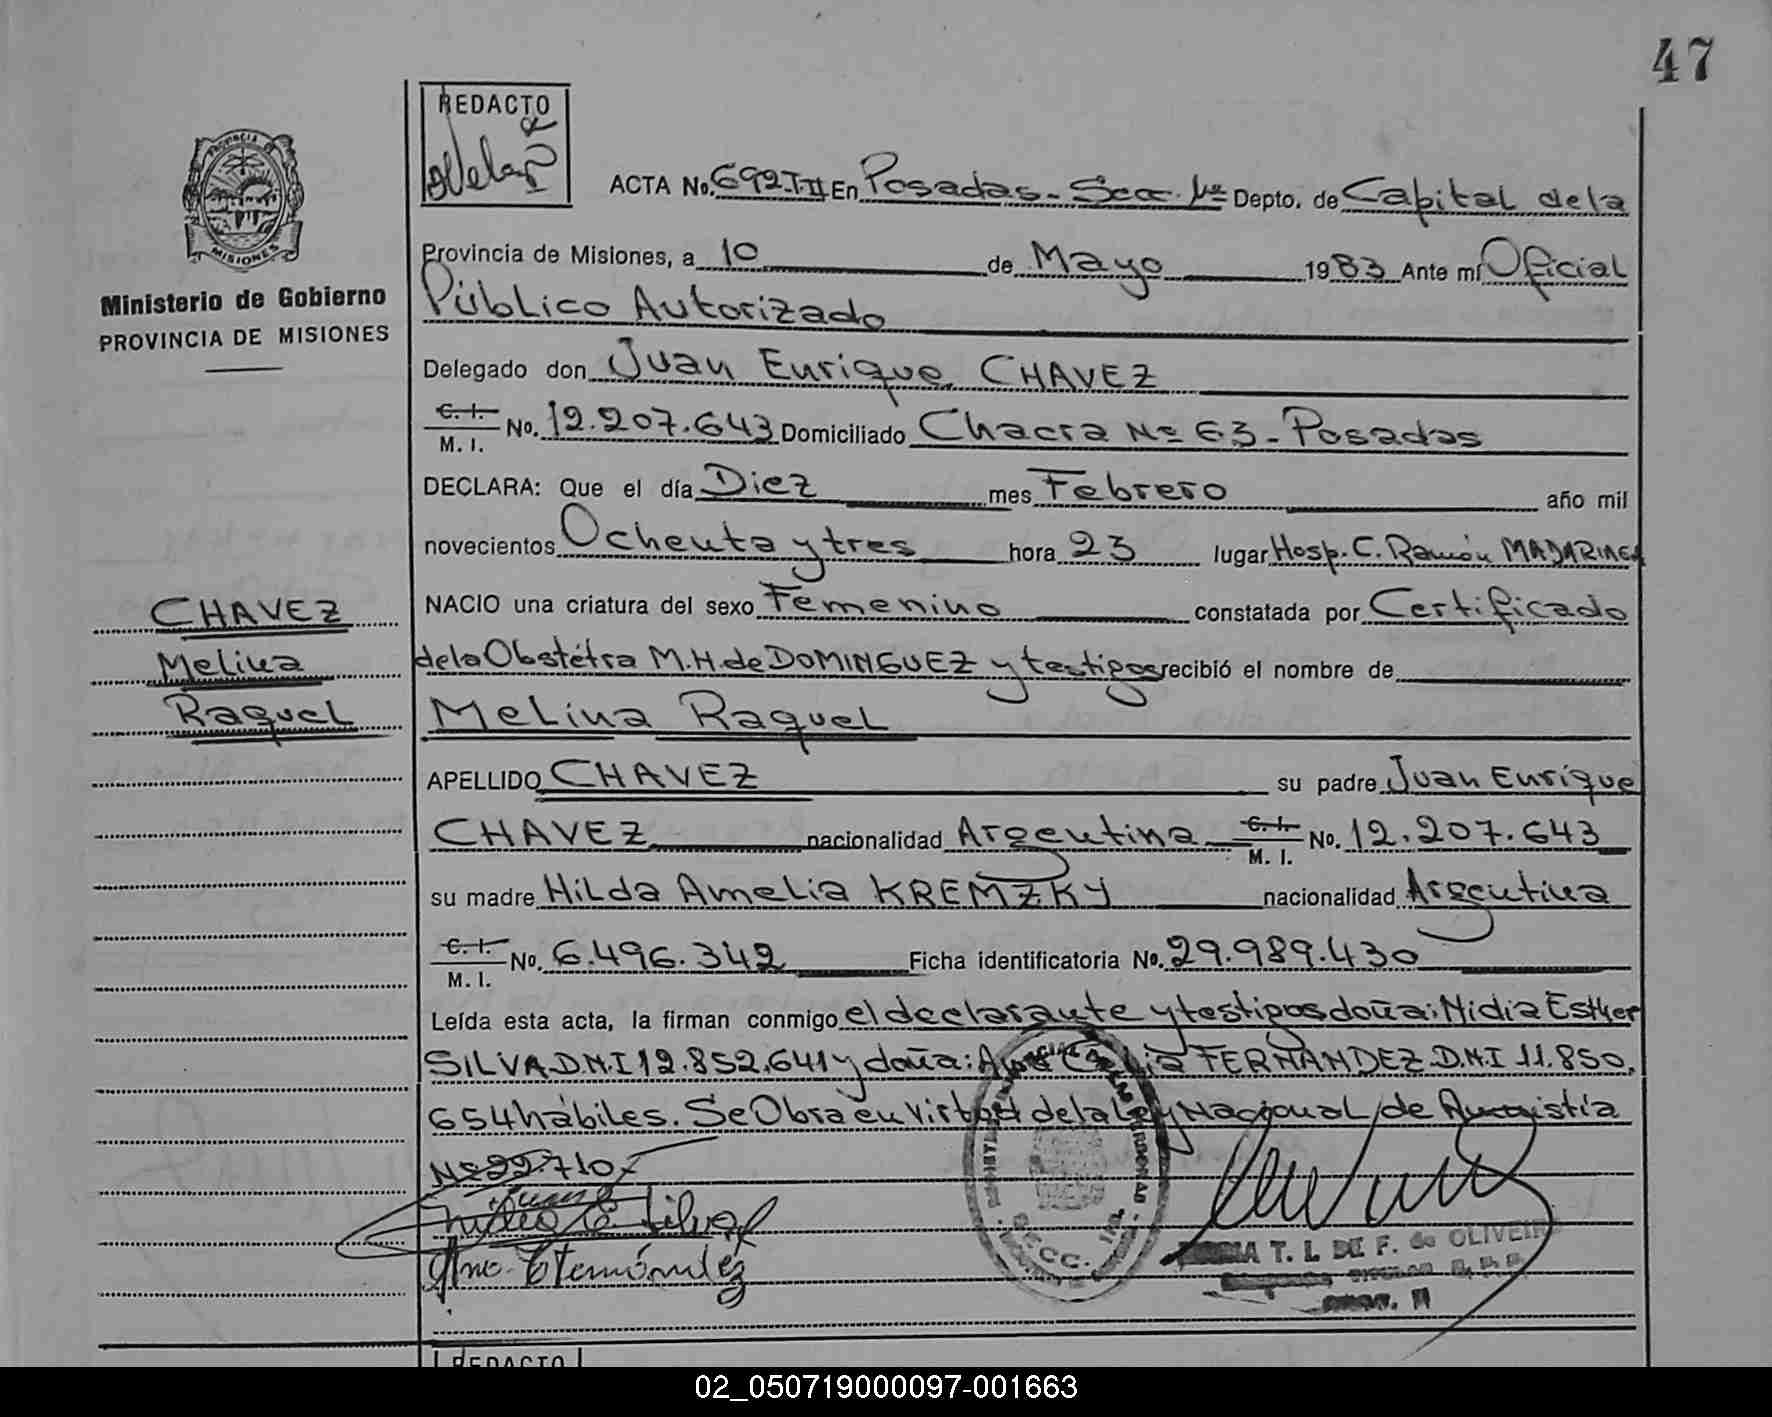 47
REDACTO
PROVINCIA DE
MISIONES
Ministerio de Gobierno
PROVINCIA DE MISIONES
CHAVEZ
Melina
Raquel
ACTA No. 692 T-II En Posadas - Secc. 1ra Depto. de Capital de la
Provincia de Misiones, a 10 de Mayo 1983 Ante mí Oficial
Público Autorizado
Delegado don Juan Enrique CHAVEZ
C. I. M. I. No. 12.207.643 Domiciliado Chacra Nº 63 - Posadas
DECLARA: Que el día Diez mes Febrero año mil
novecientos Ochenta y tres hora 23 lugar Hosp. C. Ramón MADARIAGA
NACIO una criatura del sexo Femenino constatada por Certificado
de la Obstétra M.H. de DOMINGUEZ y testigos recibió el nombre de
Melina Raquel
APELLIDO CHAVEZ su padre Juan Enrique
CHAVEZ nacionalidad Argentina C. I. M. I. No. 12.207.643
su madre Hilda Amelia KREMZKY nacionalidad Argentina
C. I. M. I. No. 6.496.342 Ficha identificatoria No. 29.989.430
Leída esta acta, la firman conmigo el declarante y testigos doña: Nidia Esther
SILVA D.N.I 12.852.641 y doña: Ana Celia FERNANDEZ D.N.I 11.850.
654 hábiles. Se Obra en virtud de la Ley Nacional de Amnistía
Nº 22.710.-
Nidia E. Silva
Ana C. Fernández
T. L. DE F. de OLIVEIRA
REDACTO
02_050719000097-001663